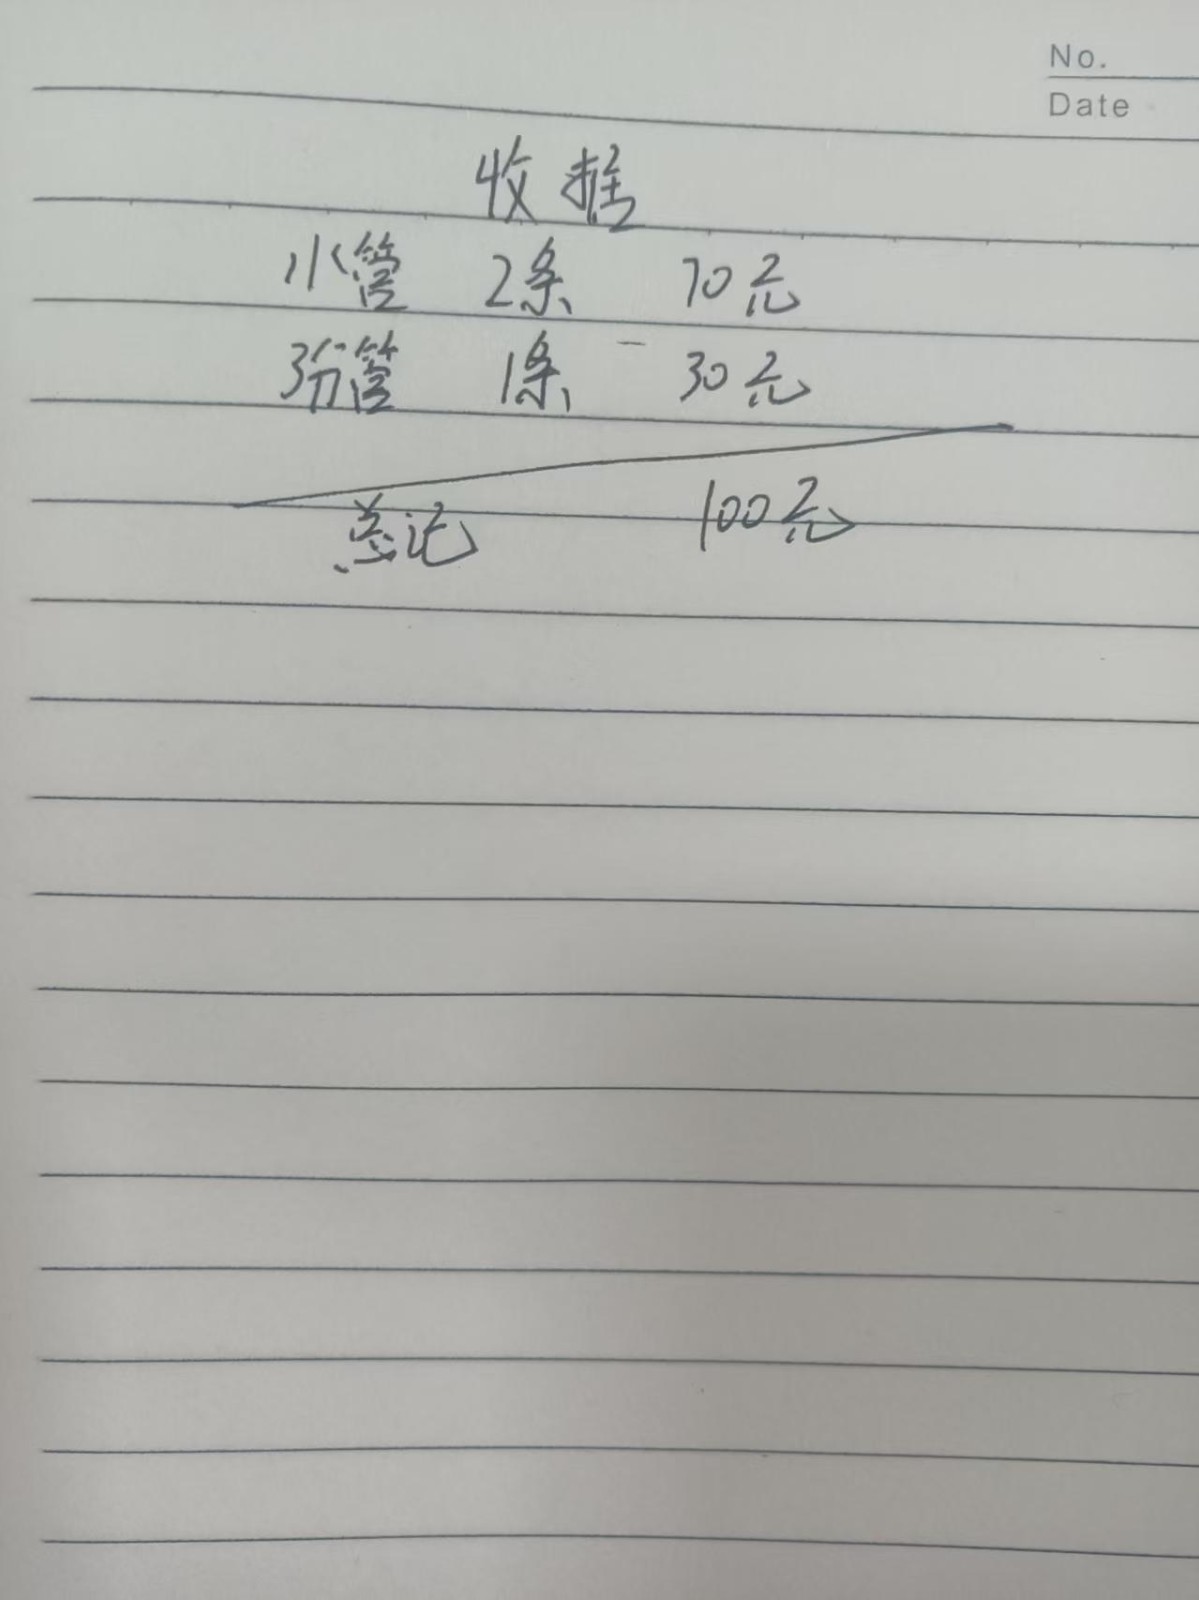 No.
Date
收据
水管 2条 70元
3分管 1条 30元
总记 100元